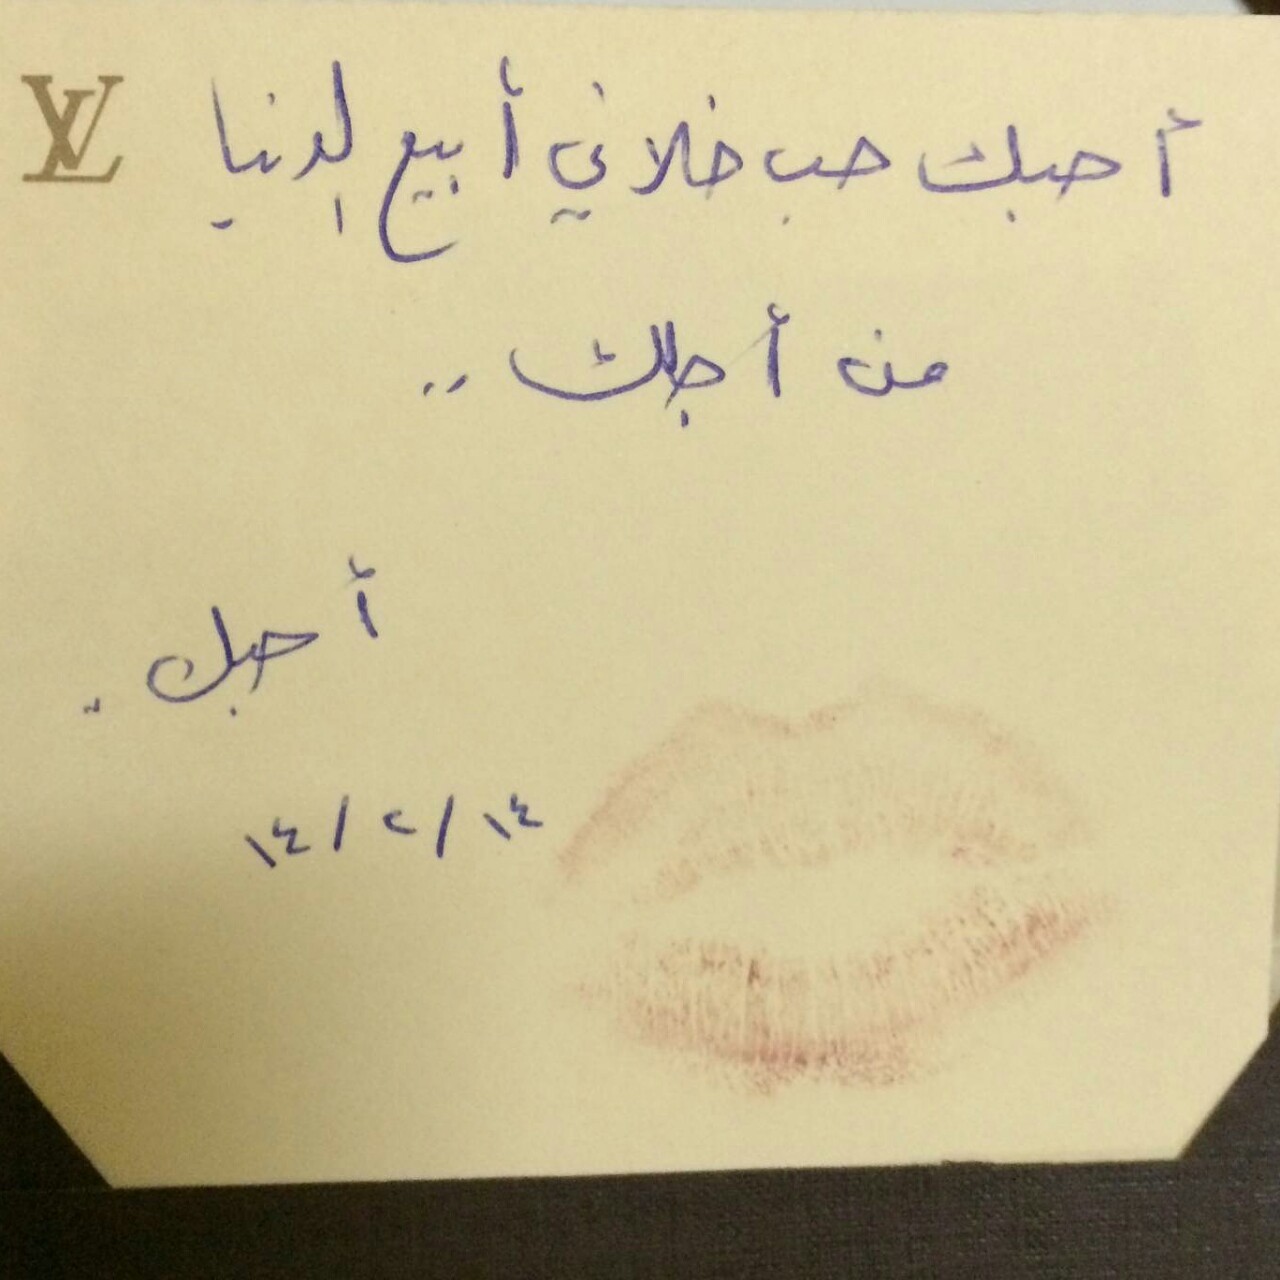 LV
أحبك حب خلاني أبيع الدنيا
من أجلك ..
أحبك ..
١٤ / ٢ / ١٤